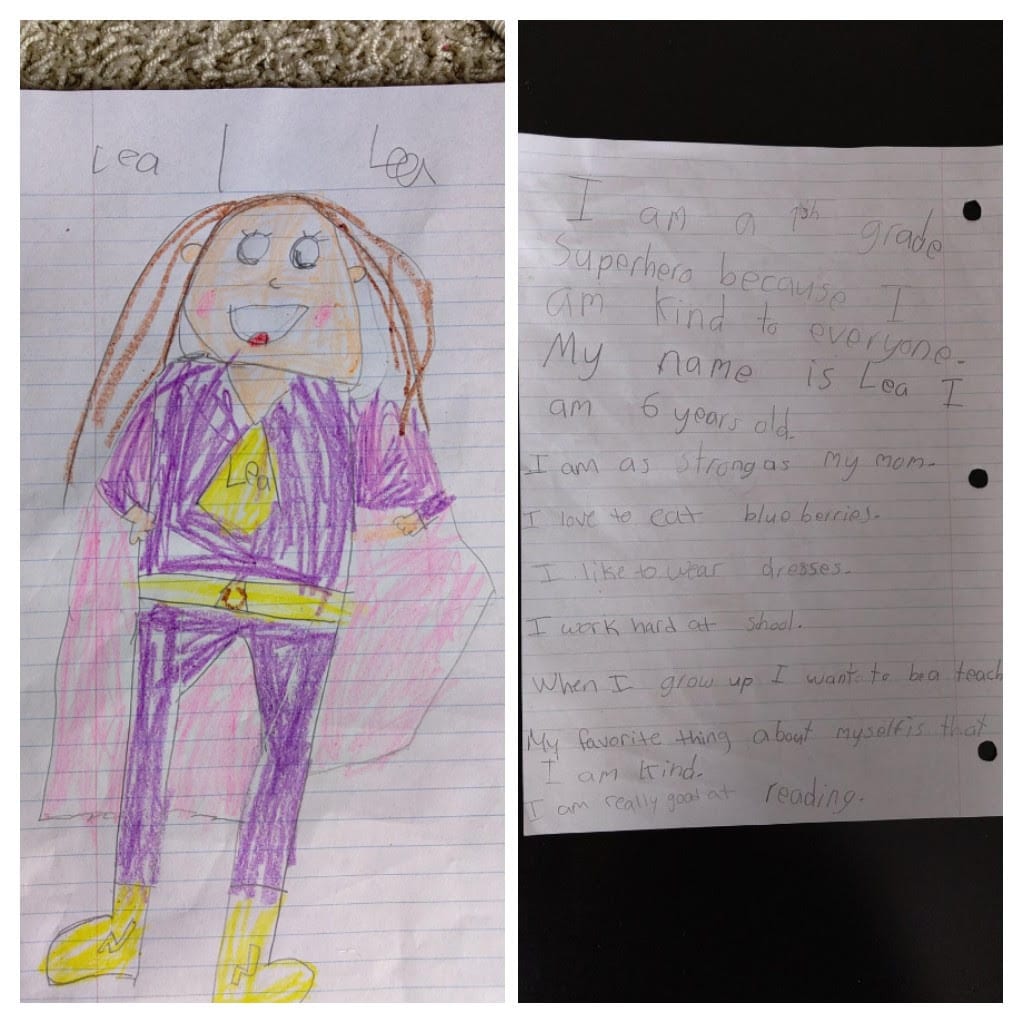 Lea Lea
Lea
I am a 1sh grade
Superhero because I
am kind to everyone.
My name is Lea I
am 6 years old.
I am as strong as my mom.
I love to eat blue berries.
I like to wear dresses.
I work hard at school.
When I grow up I want to be a teach
My favorite thing about myself is that
I am kind.
I am really good at reading.